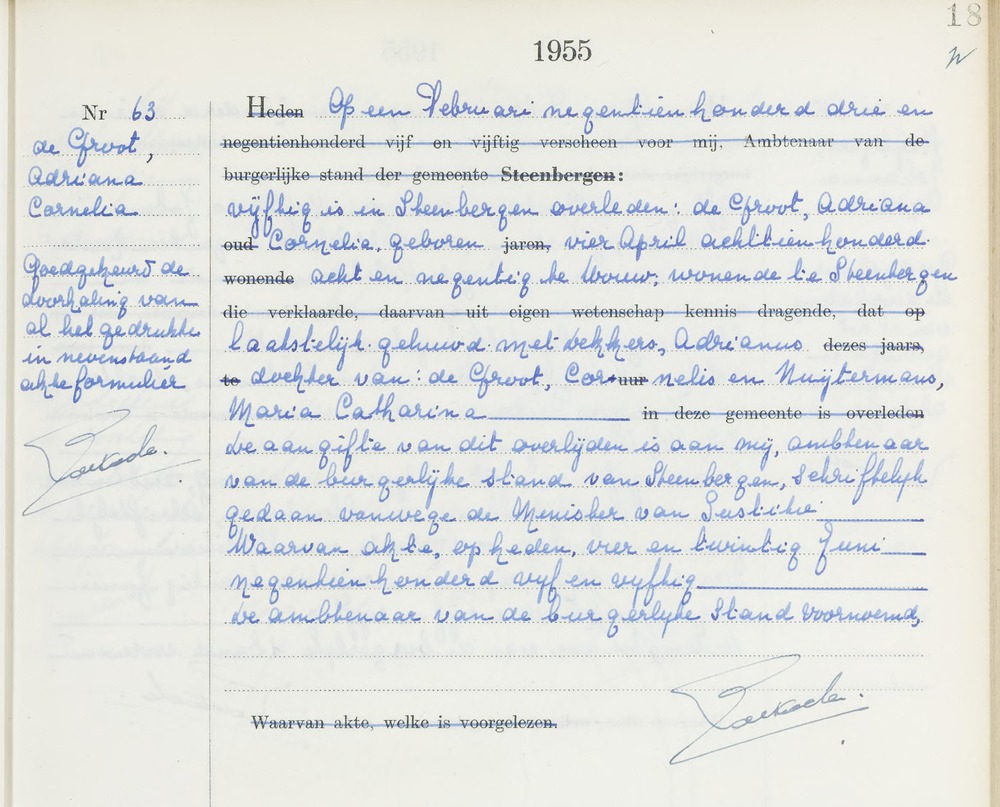 18
1955
Nr 63
de Groot,
Adriana
Cornelia
Goedgekeurd de
doorhaling van
al het gedrukte
in nevenstaand
akte formulier
Heden Op een Februari negentienhonderd drie en
negentienhonderd vijf en vijftig verscheen voor mij, Ambtenaar van de
burgerlijke stand der gemeente Steenbergen:
vijftig is in Steenbergen overleden: de Groot, Adriana
oud Cornelia, geboren jaren, vier April achttienhonderd
wonende acht en negentig te Wouw, wonende te Steenbergen
die verklaarde, daarvan uit eigen wetenschap kennis dragende, dat op
laatstelijk gehuwd met Dekkers, Adrianus dezes jaars,
te dochter van: de Groot, Cor uur nelis en Nuijtermans,
Maria Catharina in deze gemeente is overleden
De aangifte van dit overlijden is aan mij, ambtenaar
van de burgerlijke stand van Steenbergen, schriftelijk
gedaan vanwege de Menister van Justitie
Waarvan akte, op heden, vier en twintig Juni
negentienhonderd vijf en vijftig
De ambtenaar van de burgerlijke stand voornoemd,
Waarvan akte, welke is voorgelezen.